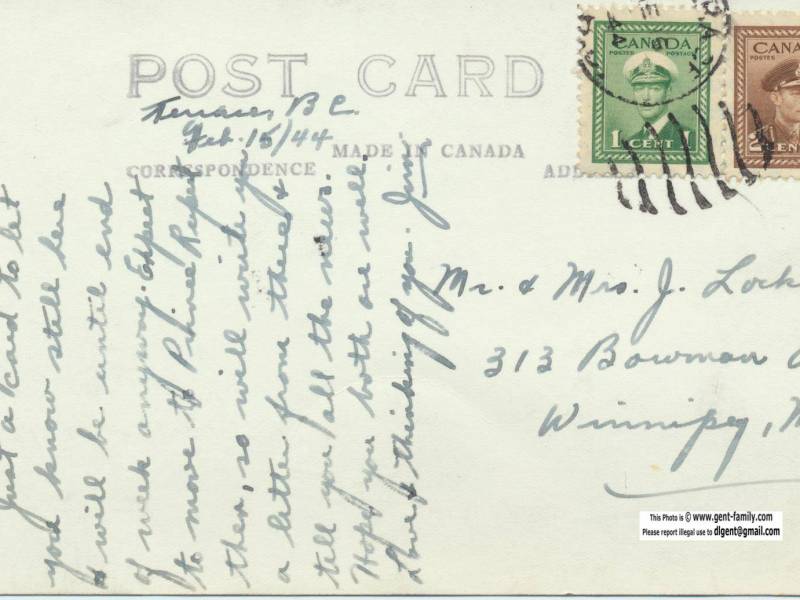 POST CARD
Terrace, B.C.
Feb. 15/44
MADE IN CANADA
CORRESPONDENCE
Just a card to let
you know still here
& will be until end
of week anyway. Expect
to move to Prince Rupert
then, so will write you
a letter from there &
tell you all the news.
Hope you both are well.
Love & thinking of you. Jim
CANADA
POSTES POSTAGE
1 CENT 1
CANA
POSTES
2 CENT
Mr. & Mrs. J. Lock
313 Bowman A
Winnipeg, M
This Photo is © www.gent-family.com
Please report illegal use to dlgent@gmail.com